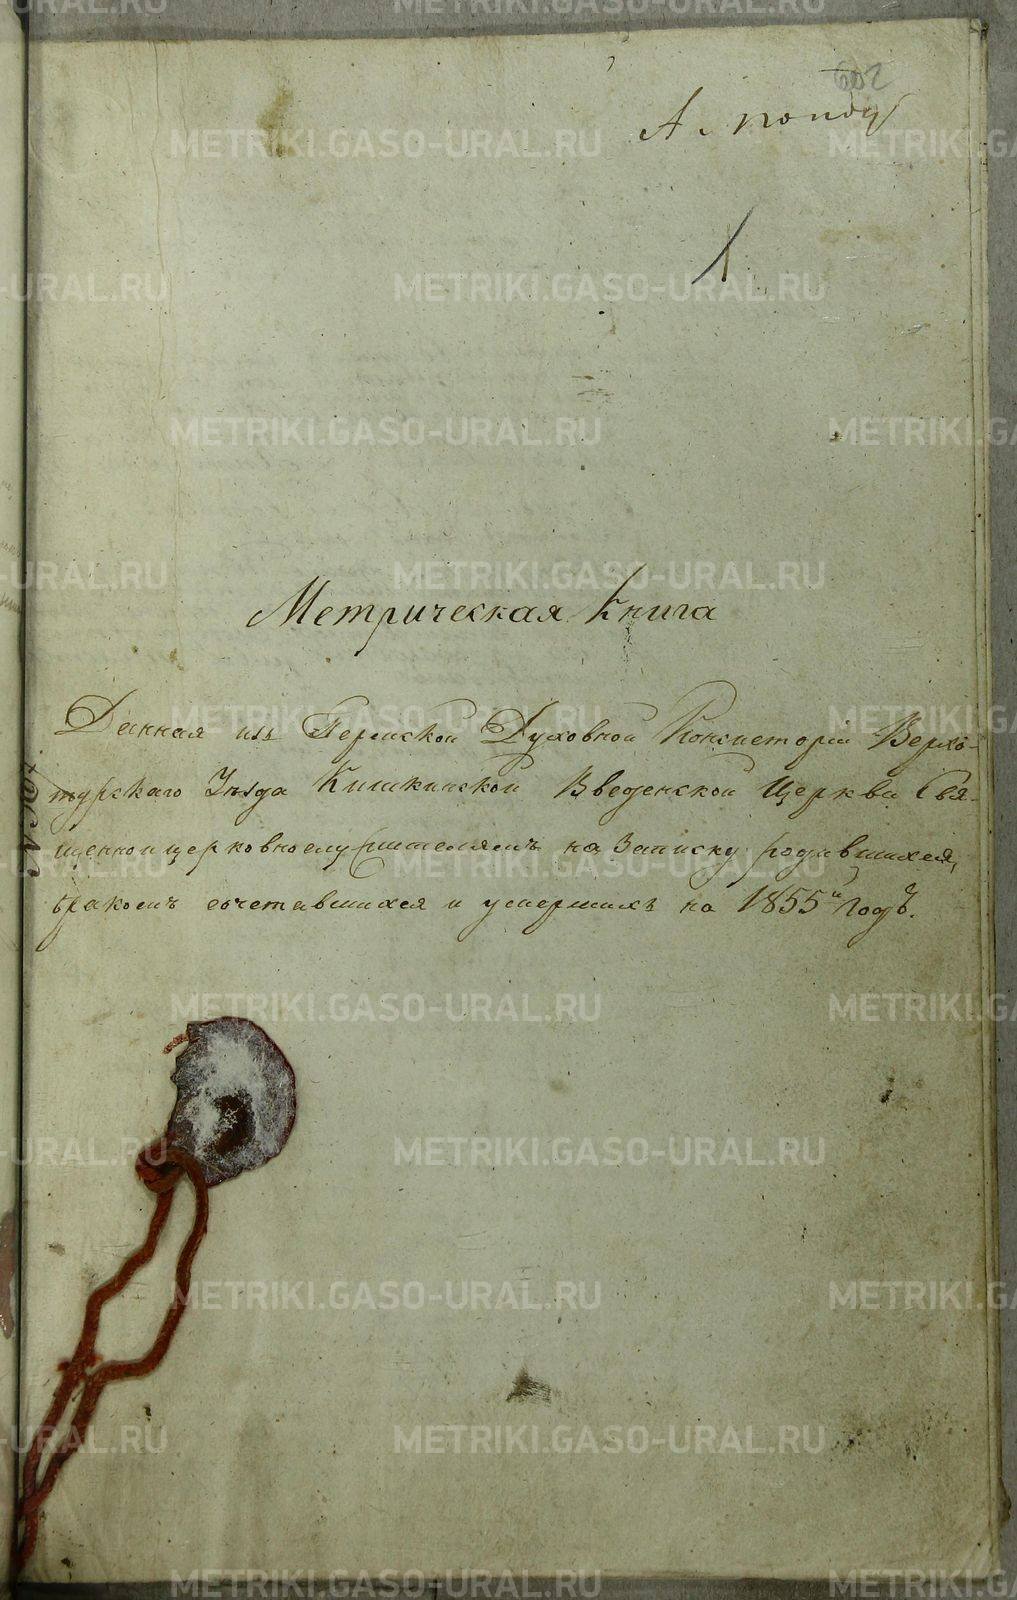 602
1
Метрическая Книга
Данная изъ Пермской Духовной Консисторіи Верхо-
турскаго Уѣзда Кишкинской Введенской Церкви Свя-
щенноцерковнослужителямъ на записку родившихся,
бракомъ сочетавшихся и умершихъ на 1855й Годъ.
METRIKI.GASO-URAL.RU